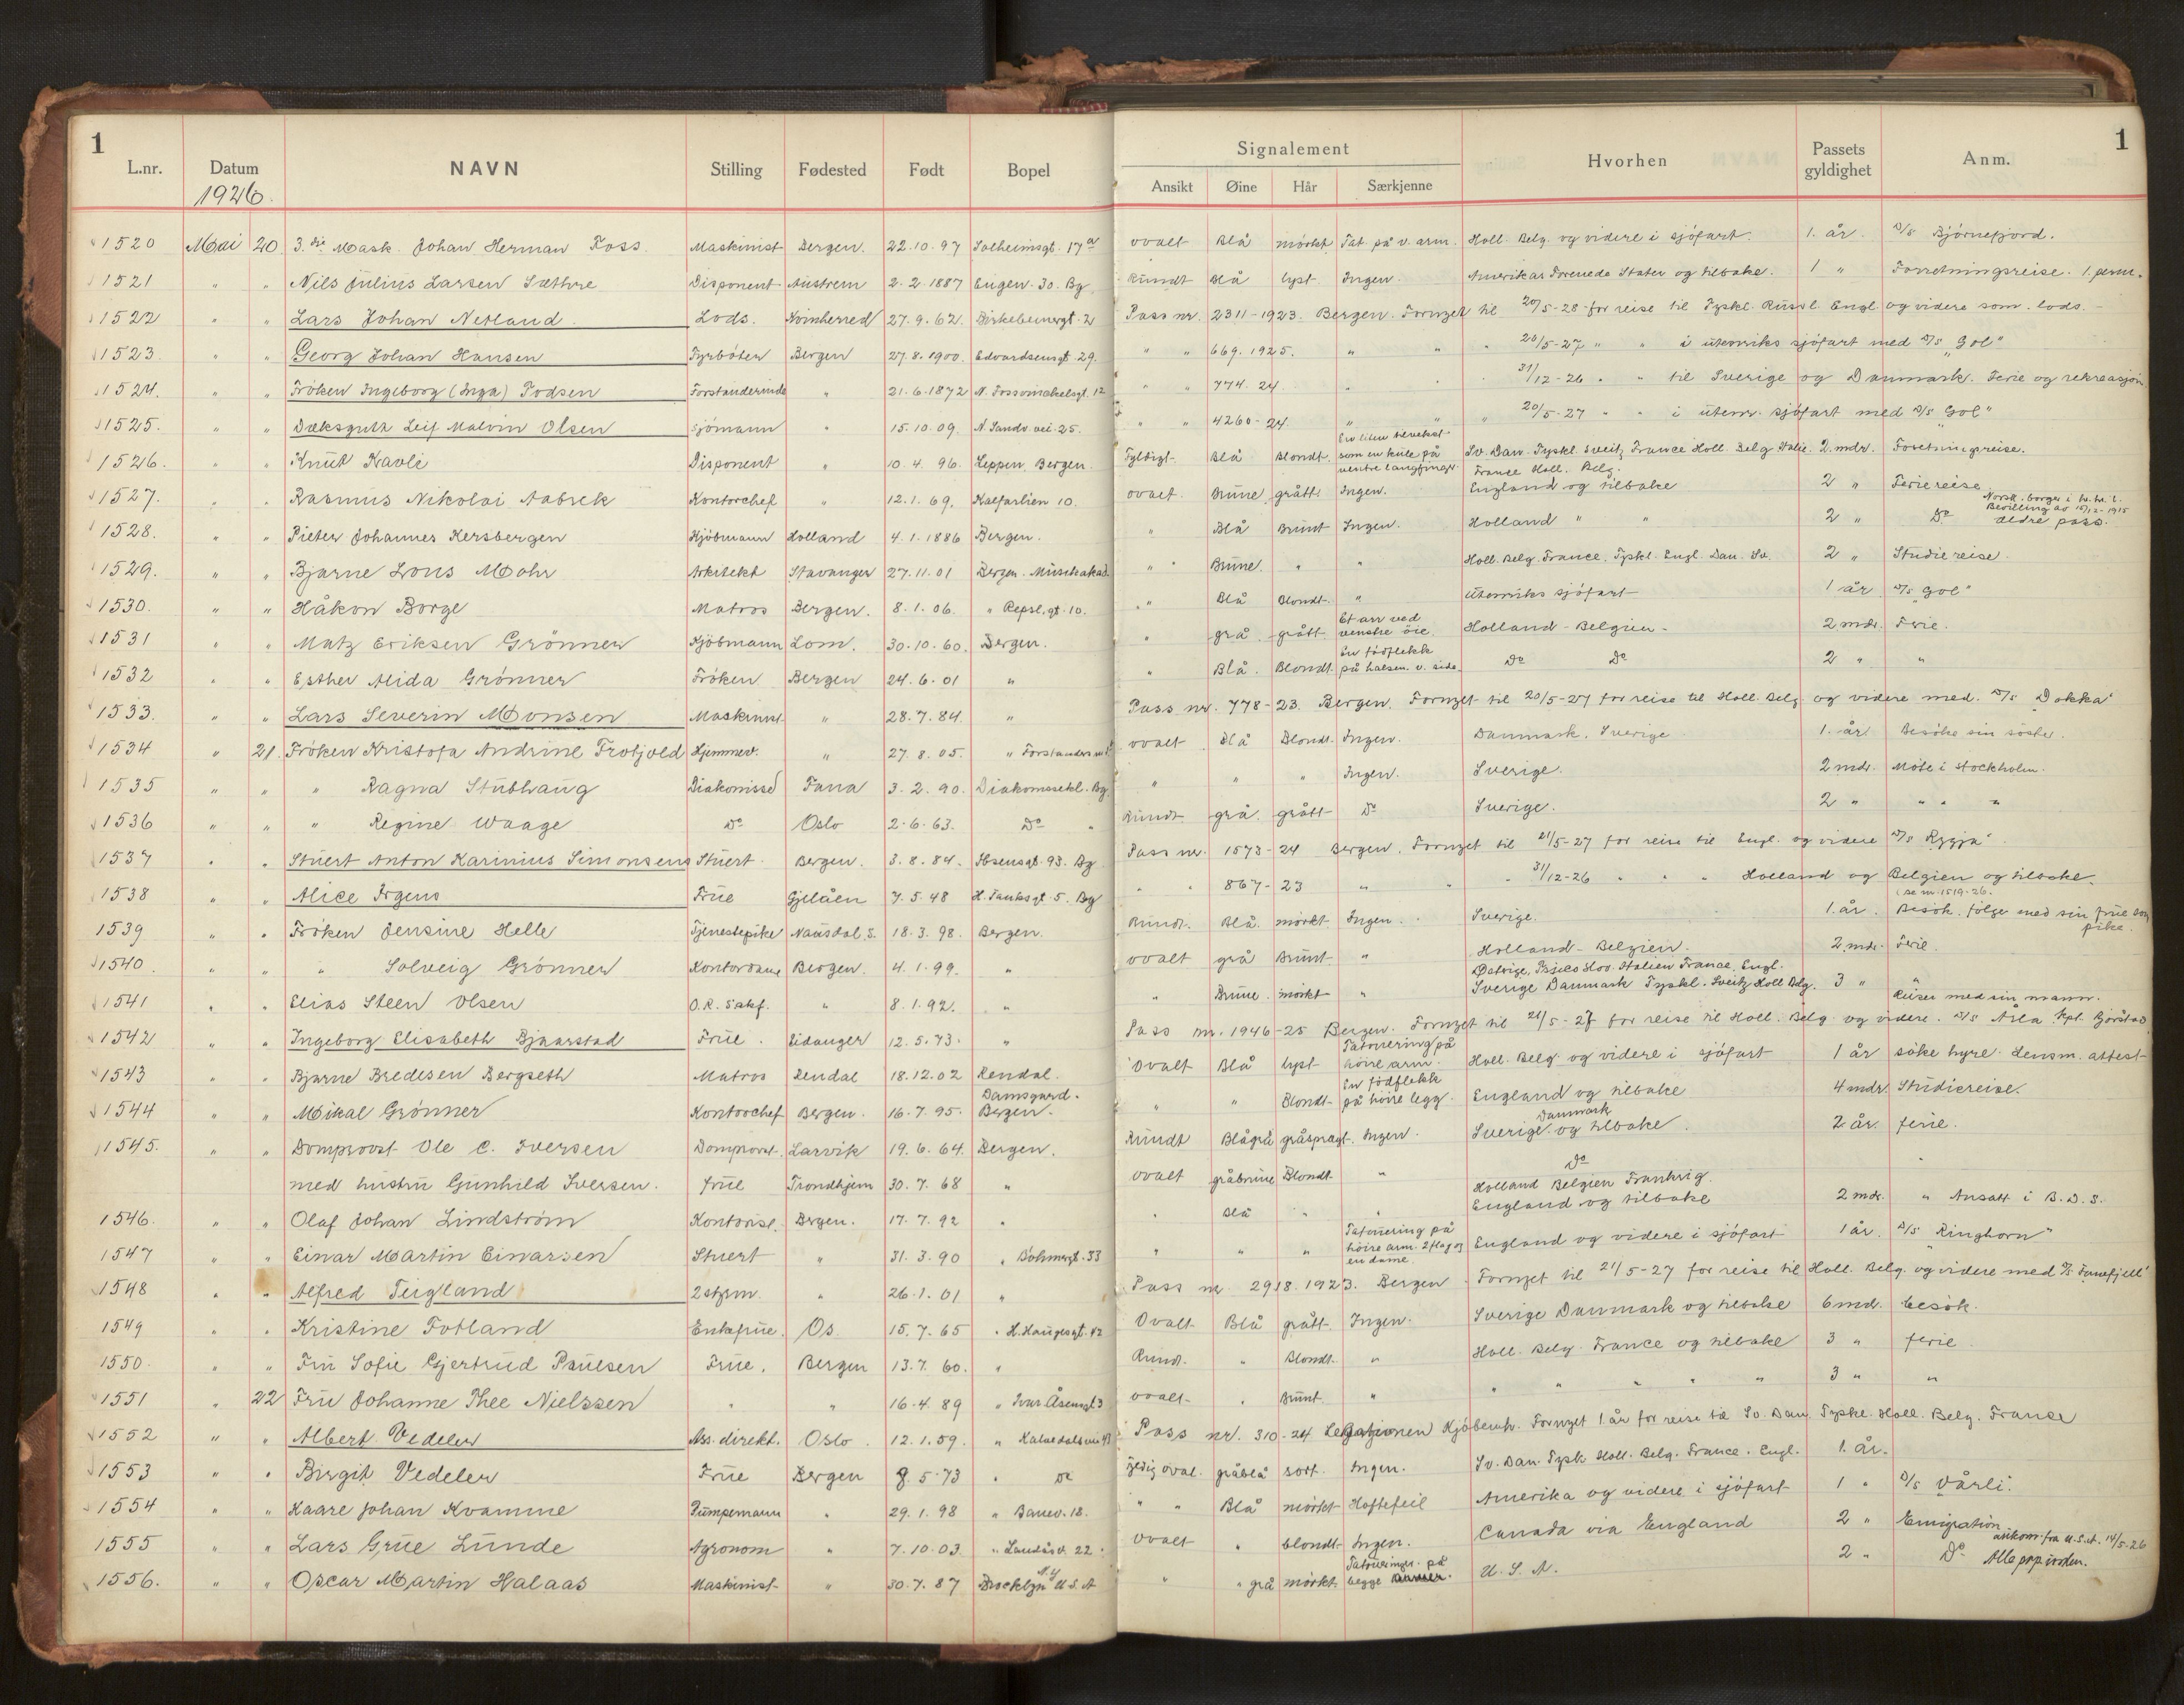 1
L.nr. Datum NAVN Stilling Fødested Født Bopel
1926.
1520 Mai 20. 3.die Mask. Johan Herman Foss. Maskinist Bergen. 22.10.97 Solheimsgt. 17a
1521 " " Nils Julius Larsen Sæthre Disponent Austrem 2.2.1887 Engen 30. Bg
1522 " " Lars Johan Netland Lods. Kvinherred 27.9.62. Birkebeinergt. 2
1523. " " Georg Johan Hansen Fyrbøter Bergen 27.8.1900. Edvardsensgt. 29.
1524. " " Frøken Ingeborg (Inga) Todsen Forstanderinde " 21.6.1872 12
1525. " " Dæksgutt Leif Malvin Olsen Sjømann " 15.10.09. N. Sandv. vei 25.
1526. " " Knut Kavli Disponent " 10.4.96. Leppen, Bergen.
1527. " " Rasmus Nikolai Aabrek Kontorchef " 12.1.69. Kalfarlien 10.
1528. " " Pieter Johannes Kersbergen Kjøbmann Holland 4.1.1886 Bergen.
1529. " " Bjarne Lous Mohr Arkitekt Stavanger 27.11.01 Bergen. Musikakad.
1530. " " Håkon Borge Matros Bergen. 8.1.06. " Repsl.gt. 10.
1531 " " Matz Eriksen Grønner Kjøbmann Lom. 30.10.60. Bergen.
1532 " " Esther Alida Grønner Frøken Bergen 24.6.01 "
1533. " " Lars Severin Monsen Maskinist " 28.7.84. "
1534 " 21. Frøken Kristofa Andrine Hjemmev. " 27.8.05. "
1535 " " " Ragna Stubhaug Diakonisse Fana 3.2.90. Bg.
1536 " " " Regine Waage Do Oslo 2.6.63. Do "
1537 " " Stuert Anton Karinius Simonsens Stuert Bergen. 3.8.84. Ibsensgt. 93. Bg
1538 " " Alice Irgens Frue Gjeläen 7.5.48 H. Tanksgt 5. Bg
1539 " " Frøken Jensine Helle Tjenestepike Naustdal, S. 18.3.98. Bergen.
1540. " " " Solveig Grønner Kontordame Bergen. 4.1.99. "
1541 " " Elias Steen Olsen O.R. Sakf. " 8.1.92. "
1542 " " Ingeborg Elisabeth Bjaarstad Frue. Eidanger 12.5.73. "
1543 " " Bjarne Bredesen Bergseth Matros Rendal 18.12.02 Rendal.
Damsgard.
1544 " " Mikal Grønner Kontorchef Bergen. 16.7.95. Bergen.
1545. " " Domprovst Ole C. Iversen Domprovst. Larvik 19.6.64. Bergen.
med hustru Gunhild Iversen. frue Trondhjem 30.7.68 "
1546. " " Olaf Johan Lindstrøm Kontorist. Bergen. 17.7.92 "
1547 " " Einar Martin Einarsen Stuert " 31.3.90 " Bøhmergt. 33
1548 " " Alfred Teigland 2 styrm. " 26.1.01 "
1549 " " Kristine Totland Enkefrue. Os. 15.7.65 " H. Haugesgt. 42
1550. " " Fru Sofie Gjertrud Paulsen Frue. Bergen 13.7.60. "
1551 " 22 Fru Johanne Thee Nielssen " " 16.4.89 " Ivar Åsensgt 3
1552 " " Albert Vedeler Ass. direkt. Oslo. 12.1.59. " Kalvedalsvei
1553 " " Birgit Vedeler Frue Bergen 8.5.73 " Do
1554 " " Kaare Johan Kvamme Pumpemann " 29.1.98 " Banev. 18.
1555 " " Lars Grue Lunde Agronom " 7.10.03. " Landåsv. 22.
1556. " " Oscar Martin Halaas Maskinist " 30.7.87 Brooklyn N.Y U.S.A
1
Signalement Hvorhen Passets gyldighet Anm.
Ansikt Øine Hår Særkjenne
ovalt Blå mørkt Tat. på v. arm. Holl. Belg. og videre i sjøfart. 1. år. D/S Bjørnefjord.
Rundt Blå lyst. Ingen. Amerikas Forenede Stater og tilbake. 1 " Forretningsreise.
Pass nr. 2311-1923. Bergen. Fornyet til 20/5-28 for reise til Tyskl. Russl. Engl. og videre som lods.
" " 669. 1925. " " " 20/5-27 " " i utenriks sjøfart med D/S "Gol"
" " 774. 24. " 31/12-26 " " til Sverige og Danmark. Ferie og rekreasjon.
" " 4260-24. " " " 20/5-27 " " i utenr. sjøfart med D/S "Gol"
En liten tilvekst
Fyldigt. Blå Blondt. som en kule på Sv. Dan. Tyskl. Sveitz France Holl. Belg Italie. 2. mdr. Forretningsreise.
venstre langfinger. France Holl. Belg.
ovalt. Brune grått. Ingen. England og tilbake 2 " Feriereise
Norsk borger i
Bevilling av 10/12-1915
" Blå Brunt Ingen. Holland " " 2 " Do ældre pass.
" " Brune. " " Holl. Belg. France. Tyskl. Engl. Dan. Sv. 2 " Studiereise.
" Blå Blondt. " Utenriks sjøfart 1 år D/S "Gol"
Et arr ved
" grå. grått. venstre øie. Holland - Belgien - 2 mdr. Ferie.
En fødflekk
" Blå. Blondt. på halsen v. side. Do Do 2 " "
Pass nr. 778-23. Bergen. Fornyet til 20/5-27 for reise til Holl. Belg. og videre med D/S "Dokka"
ovalt Blå Blondt. Ingen. Danmark, Sverige 1. år Besøke sin søster.
" " " Ingen. Sverige. 2 mdr. Møte i Stockholm.
Rundt grå. grått Do Sverige. 2 " " " "
Pass nr. 1573-24 Bergen. Fornyet til 21/5-27 for reise til Engl. og videre D/S "Rygja"
" " 867-23 " " " 31/12-26 " " " Holland og Belgien og tilbake.
se nr. 1519-26.
Rundt. Blå. mørkt Ingen. Sverige. 1. år. Besøk. følge med sin frue som
pike.
ovalt grå Brunt " Holland - Belgien. 2. mdr. Ferie.
Italien France. Engl.
" Brune. mørkt " Sverige Danmark Tyskl. Sveitz Holl Belg. 3 " "
Reiser med sin mann.
Pass nr. 1946-25 Bergen. Fornyet til 21/5-27 for reise til Holl. Belg. og videre. D/S Arla kpt. Bjørstad
Tatouering på
Ovalt Blå lyst høire arm. Holl. Belg. og videre i sjøfart 1 år søke hyre. Lensm. attest
En fødflekk
" " Blondt på høire legg. England og tilbake 4 mdr. Studiereise.
Danmark
Rundt Blågrå gråsprægt. Ingen. Sverige og tilbake. 2 år. ferie.
ovalt gråbrune Blondt " Do "
Holland Belgien Frankrig.
" Blå " " England og tilbake 2 mdr. " Ansatt i B.D.S.
Tatouering på
" " " høire arm. 2 flag og England og videre i sjøfart 1 år. D/S "Ringhorn"
en dame.
Pass nr. 2918. 1923. Bergen. Fornyet til 21/5-27 for reise til Holl. Belg. og videre med D/S
Ovalt Blå grått. Ingen. Sverige Danmark og tilbake 6 md. besøk.
Rundt. " Blondt. " Holl. Belg. France og tilbake 3 " ferie.
ovalt " Brunt " " " " " " 3 " "
Pass nr. 310-24 Legationen Kjøbenh. Fornyet 1 år for reise til Sv. Dan. Tyskl. Holl. Belg. France
oval. gråblå sort. Ingen. Sv. Dan. Tysk Holl. Belg. France. Engl. 1. år.
" " Blå mørkt Hoftefeil Amerika og videre i sjøfart 1 " D/S Vårli.
ovalt " blondt Ingen. Canada via England 2 " Emigration
Tatoveringer på ankom. fra U.S.A. 14/5-26
" " grå mørkt begge armer. U.S.A. 2 " Do